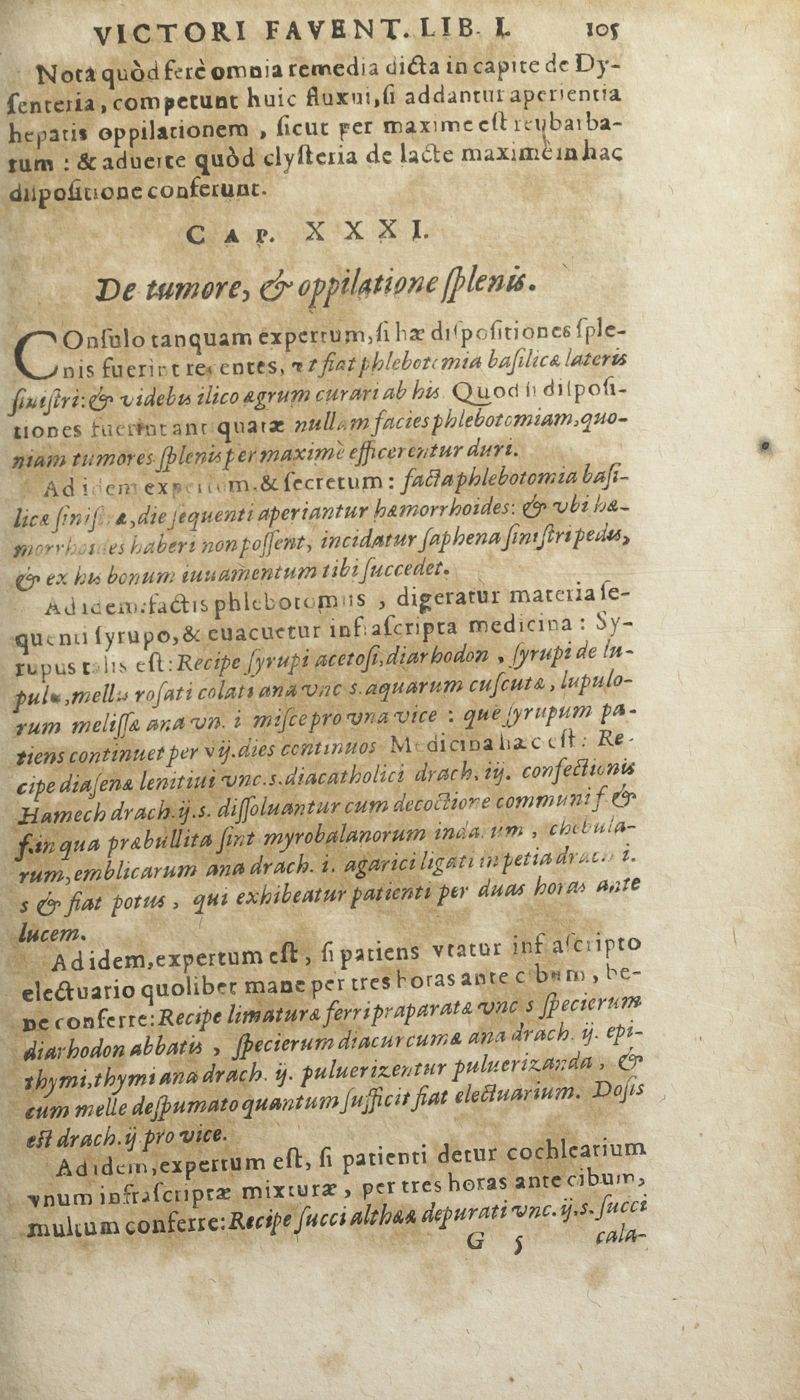 VICTORI FAVENT. LIB. I. 105
Nota quòd ferè omnia remedia dicta in capite de Dy-
ſenteria, competunt huic fluxui, ſi addantur aperientia
hepatis oppilationem, ſicut per maxime eſt reubarba-
rum : & aduerte quòd clyſteria de lacte maximè in hac
diſpoſitione conferunt.
CAP. XXXI.
De tumore, & oppilatione ſplenis.
COnſulo tanquam expertum, ſi hæ diſpoſitiones ſple-
nis fuerint recentes, vt fiat phlebotomia baſilicæ lateris
ſiniſtri: & videbis ilico ægrum curari ab his. Quod ſi diſpoſi-
tiones fuerint antiquatæ nullam facies phlebotomiam, quo-
niam tumores ſplenis per maximè efficerentur duri.
Ad idem expertum, & ſecretum: facta phlebotomia baſi-
licæ ſiniſtræ, die ſequenti aperiantur hæmorrhoides: & vbi hæ-
morrhoides haberi non poſſent, incidatur ſaphena ſiniſtri pedis,
& ex his bonum iuuamentum tibi ſuccedet.
Ad idem: factis phlebotomiis, digeratur materia ſe-
quenti ſyrupo, & euacuetur infraſcripta medicina: Sy-
rupus talis eſt: Recipe ſyrupi acetoſi, diarhodon, ſyrupi de lu-
pulis, mellis roſati colati ana vnc s. aquarum cuſcutæ, lupulo-
rum meliſſæ ana vn. i miſce pro vna vice : que ſyrupum pa-
tiens continuet per vij. dies continuos Medicina hæc eſt: Re-
cipe diaſenæ lenitiui vnc. s. diacatholici drach. iij. confectionis
Hamech drach. ij. s. diſſoluantur cum decoctione communi f &
f. in qua præbullita ſint myrobalanorum indarum, chebula-
rum, emblicarum ana drach. i. agarici ligati in petia drach. i.
s & fiat potus, qui exhibeatur patienti per duas horas ante
lucem.
Ad idem, expertum eſt, ſi patiens vtatur infraſcripto
electuario quolibet mane per tres horas ante cibum, be-
ne conferre: Recipe limaturæ ferri præparatæ vnc s ſpecierum
diarhodon abbatis, ſpecierum diacurcumæ ana drach. ij. epi-
thymi, thymi ana drach. ij. puluerizentur puluerizanda, &
cum melle deſpumato quantum ſufficit fiat electuarium. Doſis
eſt drach. ij pro vice.
Ad idem, expertum eſt, ſi patienti detur cochlearium
vnum infraſcriptæ mixturæ, per tres horas ante cibum,
multum conferre: Recipe ſucci althææ depurati vnc. ij. s. ſucci
G 5 cala-